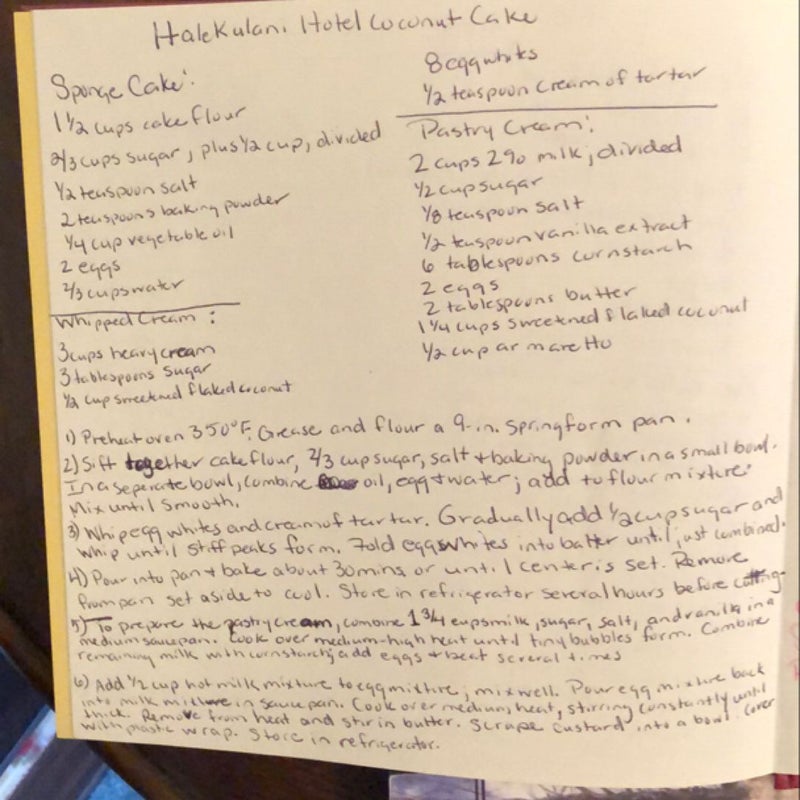 Halekulani Hotel Coconut Cake
Sponge Cake:
1 1/2 cups cake flour
2/3 cups sugar, plus 1/2 cup, divided
1/2 teaspoon salt
2 teaspoons baking powder
1/4 cup vegetable oil
2 eggs
2/3 cups water
8 egg whites
1/2 teaspoon cream of tartar
Whipped Cream:
3 cups heavy cream
3 tablespoons sugar
1/2 cup sweetened flaked coconut
Pastry Cream:
2 cups 2% milk, divided
1/2 cup sugar
1/8 teaspoon salt
1/2 teaspoon vanilla extract
6 tablespoons cornstarch
2 eggs
2 tablespoons butter
1 1/4 cups sweetned flaked coconut
1/2 cup armaretto
1) Preheat oven 350°F. Grease and flour a 9-in. Springform pan.
2) Sift together cake flour, 2/3 cup sugar, salt + baking powder in a small bowl.
In a seperate bowl, combine oil, egg + water; add to flour mixture.
Mix until smooth.
3) Whip egg whites and cream of tartar. Gradually add 1/2 cup sugar and
whip until stiff peaks form. Fold eggswhites into batter until just combined.
4) Pour into pan + bake about 30 mins or until center is set. Remove
from pan set aside to cool. Store in refrigerator several hours before cutting.
5) To prepare the pastry cream, combine 1 3/4 cups milk, sugar, salt, and vanilla in a
medium saucepan. Cook over medium-high heat until tiny bubbles form. Combine
remaining milk with cornstarch; add eggs + beat several times
6) Add 1/2 cup hot milk mixture to egg mixture; mix well. Pour egg mixture back
into milk mixture in saucepan. Cook over medium heat, stirring constantly until
thick. Remove from heat and stir in butter. Scrape custard into a bowl. Cover
with plastic wrap. Store in refrigerator.